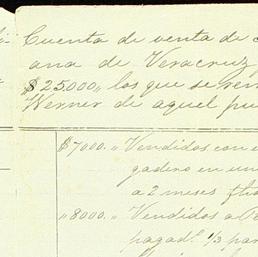 Cuenta de venta de
ana de Veracruz
$25.000,, los que se
Werner de aquel
$7000.,, Vendidos con
gadero en un
a 2 meses
,,8000.,, Vendidos a
pagad.s 1/3